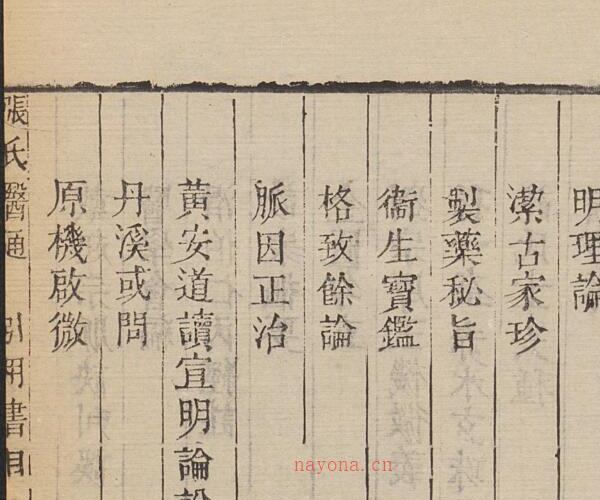 明理論
潔古家珍
製藥秘旨
衞生寶鑑
格致餘論
脈因正治
黃安道讀宣明論說
丹溪或問
原機啟微
張氏醫通 引用書目
nayona.cn